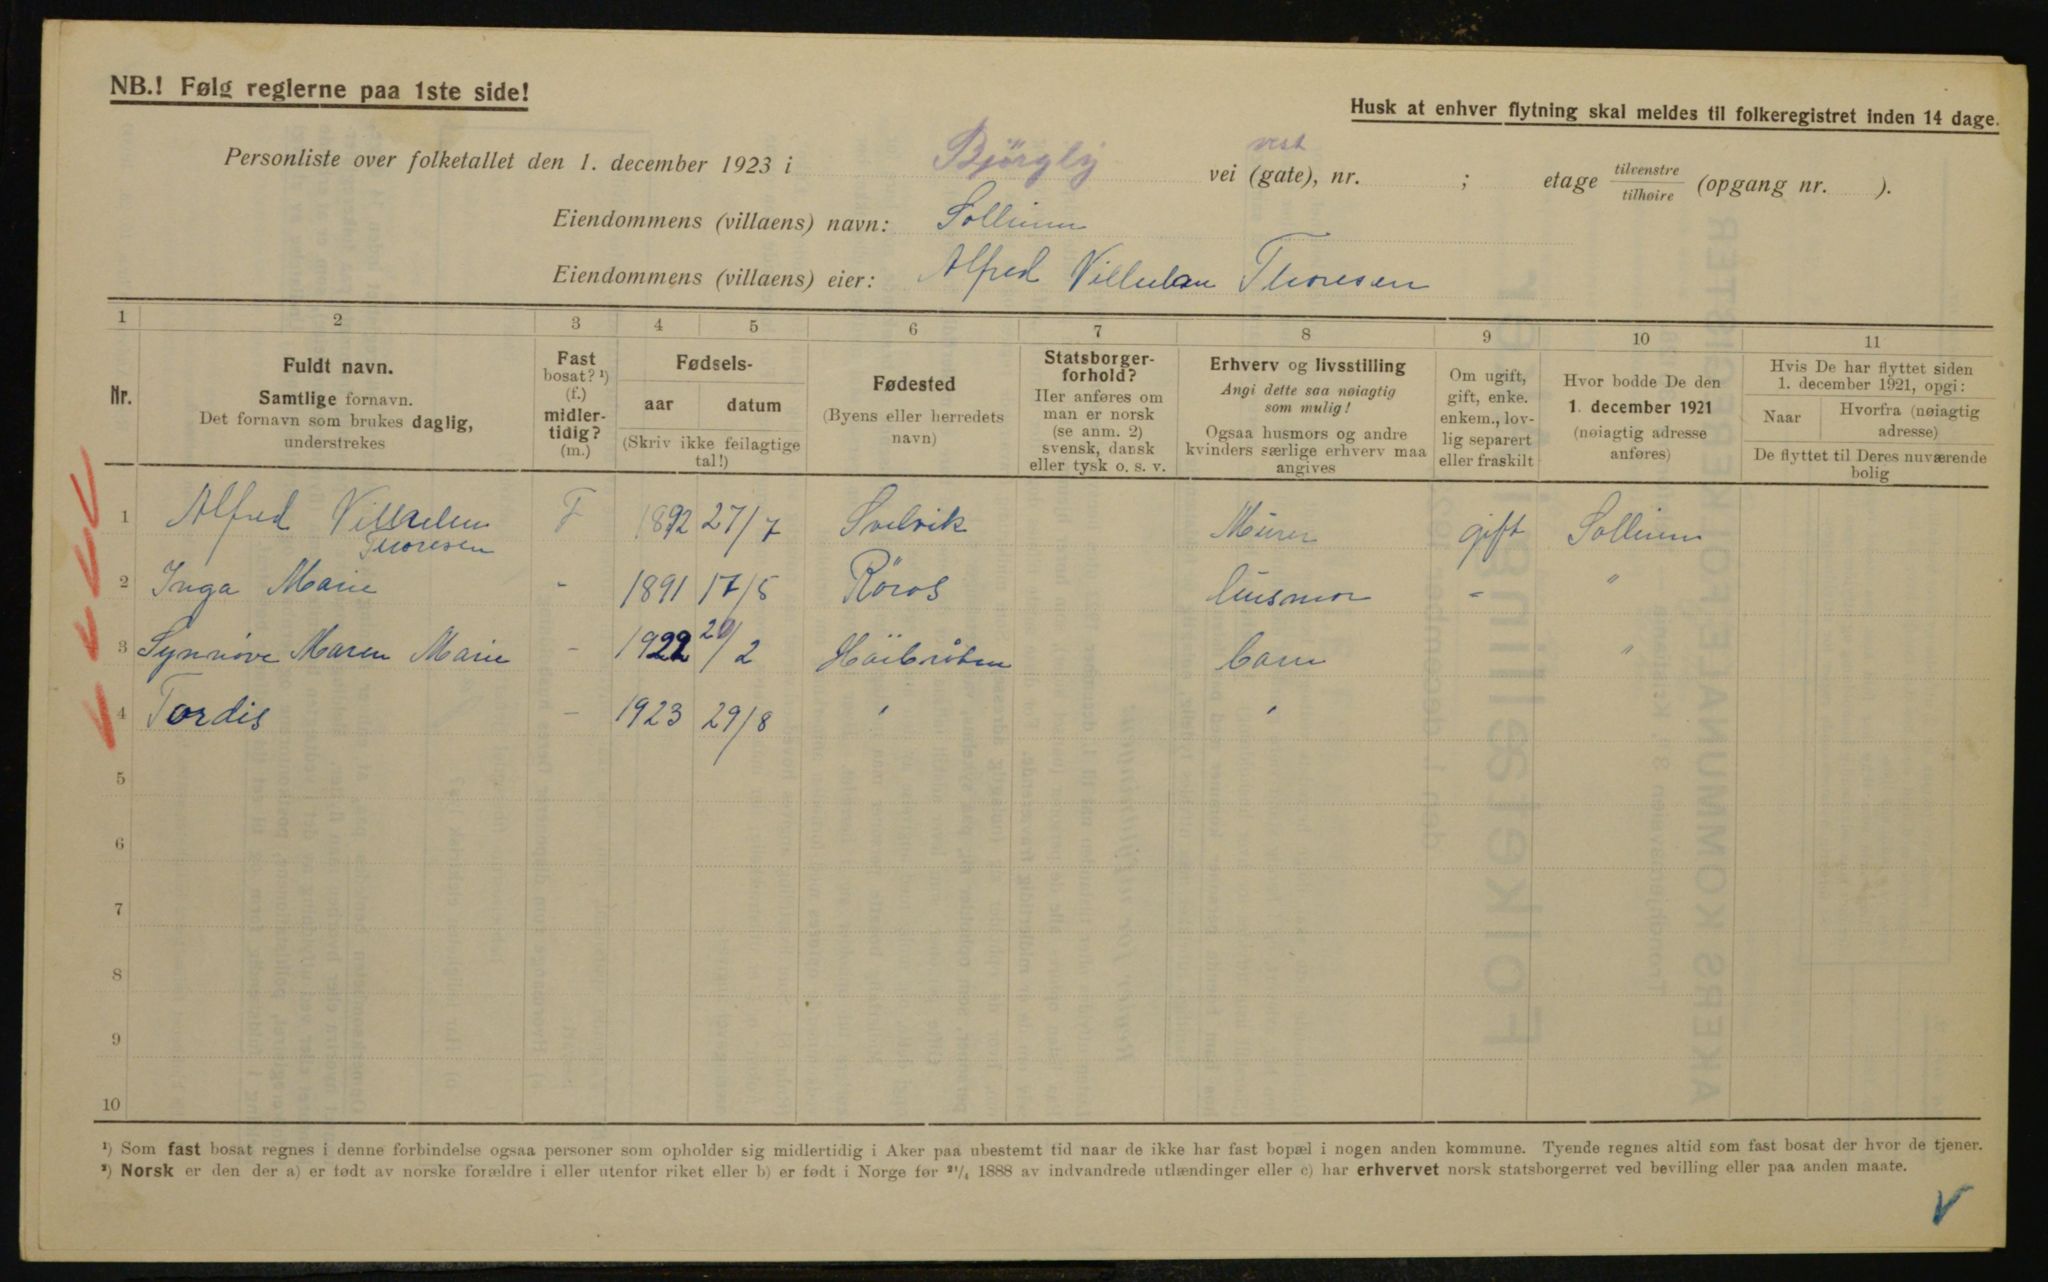 NB.! Følg reglerne paa 1ste side!
Husk at enhver flytning skal meldes til folkeregistret inden 14 dage.
vest
Personliste over folketallet den 1. december 1923 i Bjørgly vei (gate), nr. ; etage tilvenstre tilhøire (opgang nr. ).
Eiendommens (villaens) navn: Sollum
Eiendommens (villaens) eier: Alfred Villulsen Thoresen
1 2 3 4 5 6 7 8 9 10 11
Nr.
Fuldt navn.
Samtlige fornavn.
Det fornavn som brukes daglig,
understrekes
Fast
bosat? ¹)
(f.)
midler-
tidig?
(m.)
Fødsels-
aar datum
(Skriv ikke feilagtige
tal!)
Fødested
(Byens eller herredets
navn)
Statsborger-
forhold?
Her anføres om
man er norsk
(se anm. 2)
svensk, dansk
eller tysk o. s. v.
Erhverv og livsstilling
Angi dette saa nøiagtig
som mulig!
Ogsaa husmors og andre
kvinders særlige erhverv maa
angives
Om ugift,
gift, enke.
enkem., lov-
lig separert
eller fraskilt
Hvor bodde De den
1. december 1921
(nøiagtig adresse
anføres)
Hvis De har flyttet siden
1. december 1921, opgi:
Naar
Hvorfra (nøiagtig
adresse)
De flyttet til Deres nuværende
bolig
1 Alfred F 1892 27/7 Svelvik Murer gift
Thoresen
2 Inga Marie - 1891 17/5 Röros husmor - "
3 Synnöve Maren Marie - 1922 /2 barn "
4 Tordis - 1923 29/8 ' '
5
6
7
8
9
10
¹) Som fast bosat regnes i denne forbindelse ogsaa personer som opholder sig midlertidig i Aker paa ubestemt tid naar de ikke har fast bopæl i nogen anden kommune. Tyende regnes altid som fast bosat der hvor de tjener.
²) Norsk er den der a) er født av norske forældre i eller utenfor riket eller b) er født i Norge før ²¹/₄ 1888 av indvandrede utlændinger eller c) har erhvervet norsk statsborgerret ved bevilling eller paa anden maate.